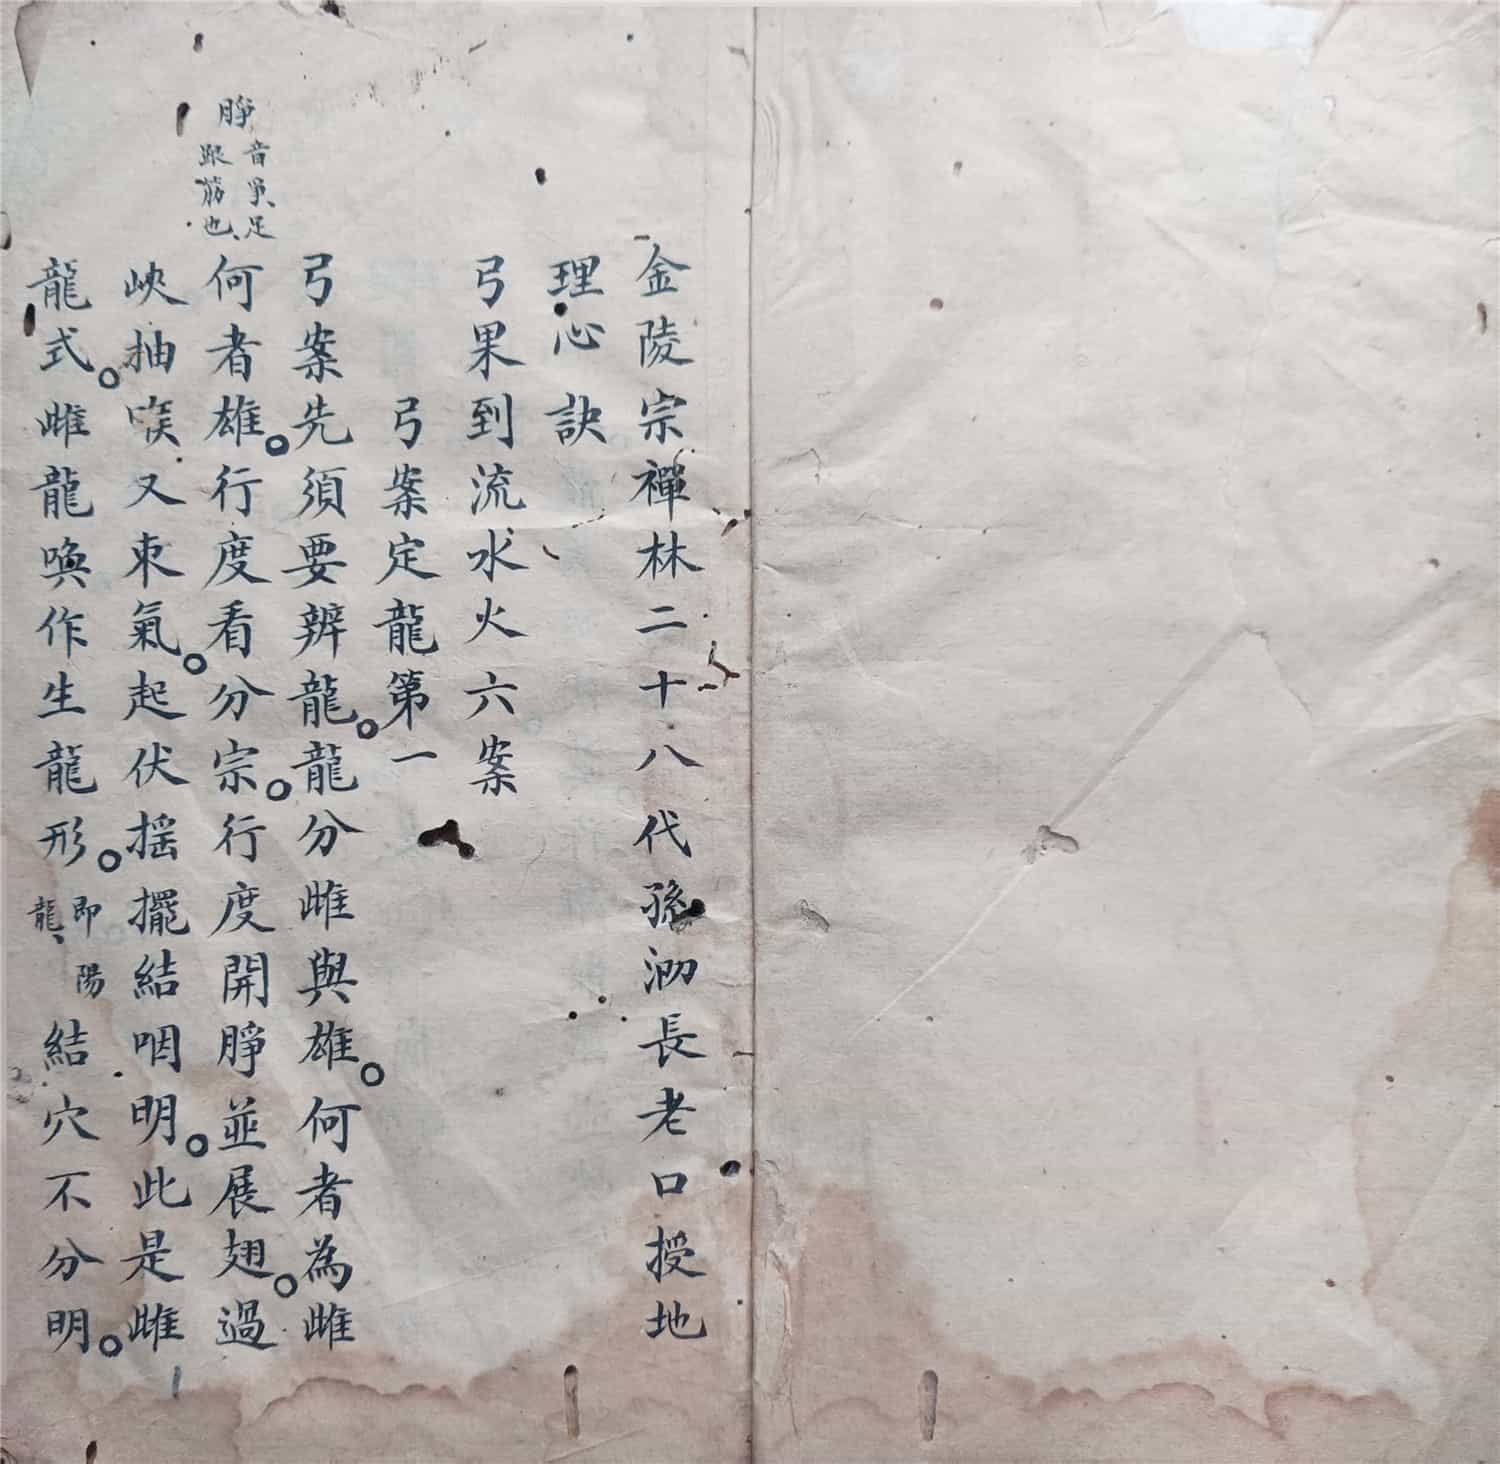 金陵宗禪林二十八代孫泐長老口授地
理心訣
弓果到流水火六案
弓案定龍第一
弓案先須要辨龍。龍分雌與雄。何者為雌
音爭、足
跟筋也、
何者雄。行度看分宗。行度開並展翅。過
峽抽㗋又束氣。起伏搖擺結咽明。此是雌
龍式。雌龍喚作生龍形。即陽龍、結穴不分明。